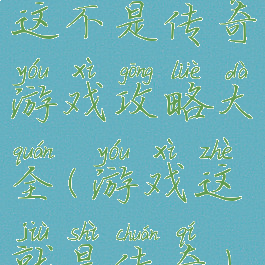 这不是传奇
yóu xì gōng lüè dà
游戏攻略大
quán yóu xì zhè
全(游戏这
jiù shì chuán qí
就是传奇)